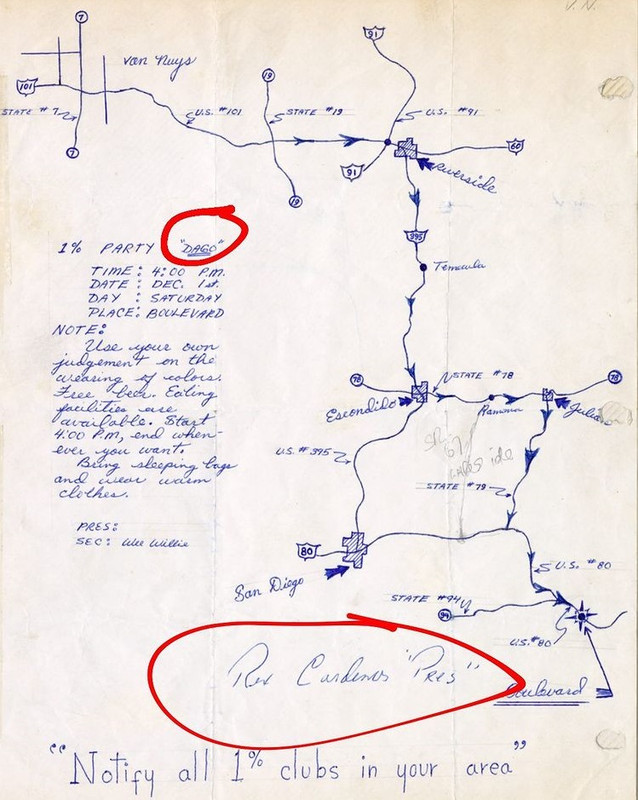 V.N.
7
91
Van Nuys
19
101
STATE #7
U.S. #101
STATE #19
U.S. #91
60
7
91
Riverside
19
395
1% PARTY "DAGO"
Temecula
TIME: 4:00 P.M.
DATE: DEC. 1st.
DAY: SATURDAY
PLACE: BOULEVARD
NOTE:
Use your own
judgement on the
wearing of colors.
Free beer. Eating
facilities are
available. Start
4:00 P.M, end when-
ever you want.
Bring sleeping bags
and wear warm
clothes.
PRES:
SEC: Wee Willie
STATE #78
78
78
Escondido
Ramona
Julian
67
U.S. #395
STATE #79
80
San Diego
U.S. #80
STATE #94
94
U.S. #80
Boulevard
Rex Cardenas "Pres"
"Notify all 1% clubs in your area"